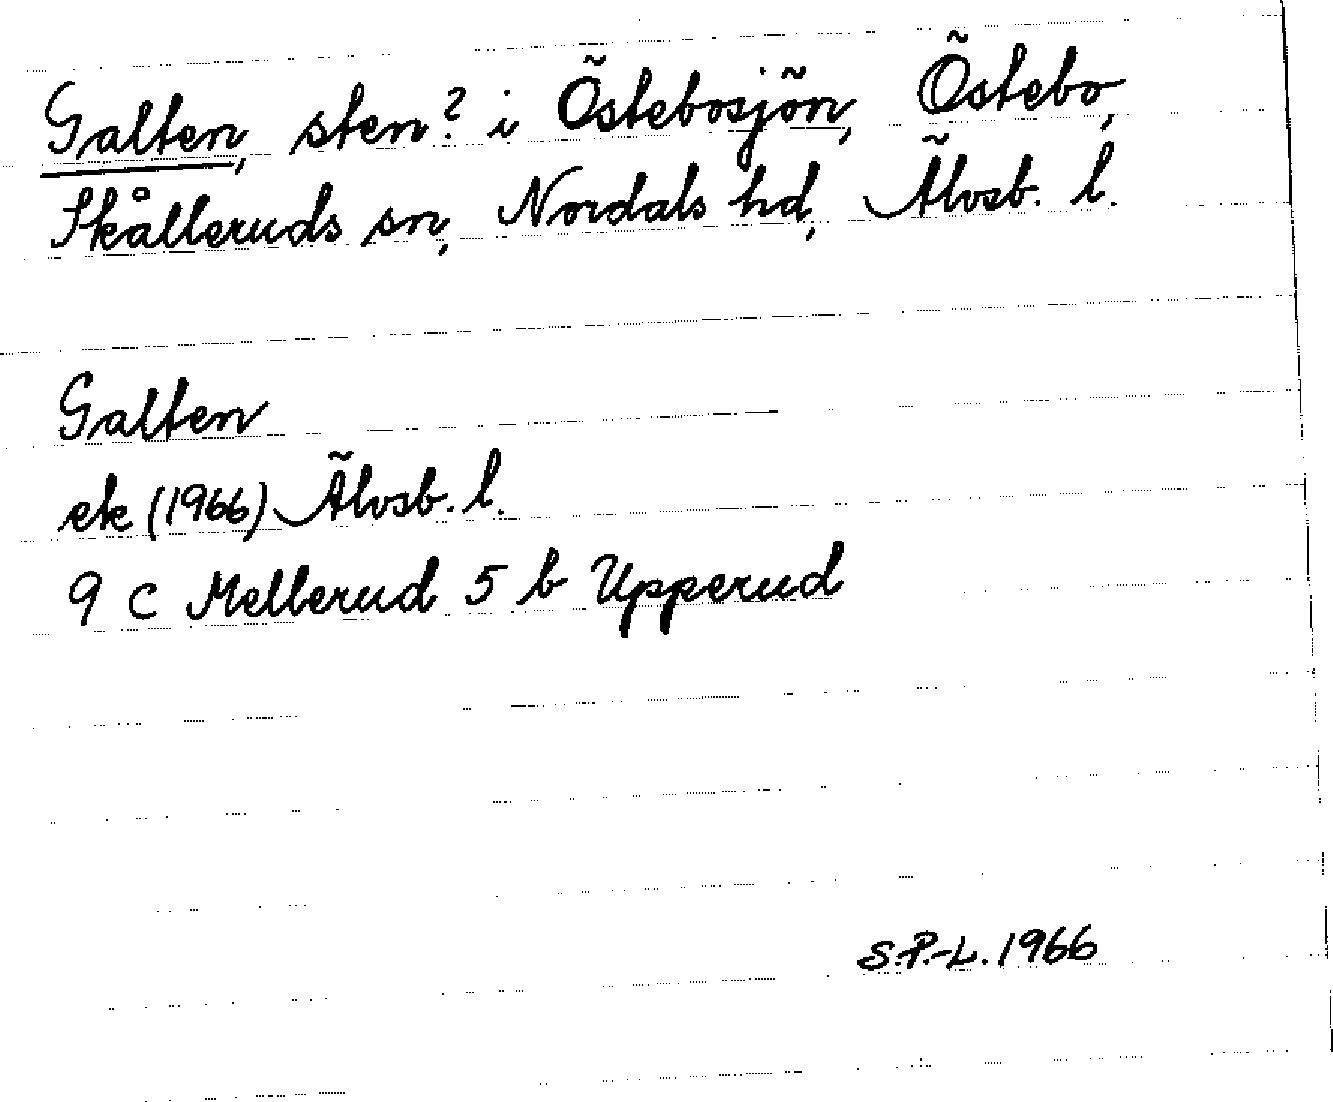 Galten, sten? i Östebosjön, Östebo,
Skålleruds sn, Nordals hd, Älvsb. l.
Galten
ek (1966) Älvsb. l.
9 C Mellerud 5 b Upperud
S.P.-L. 1966